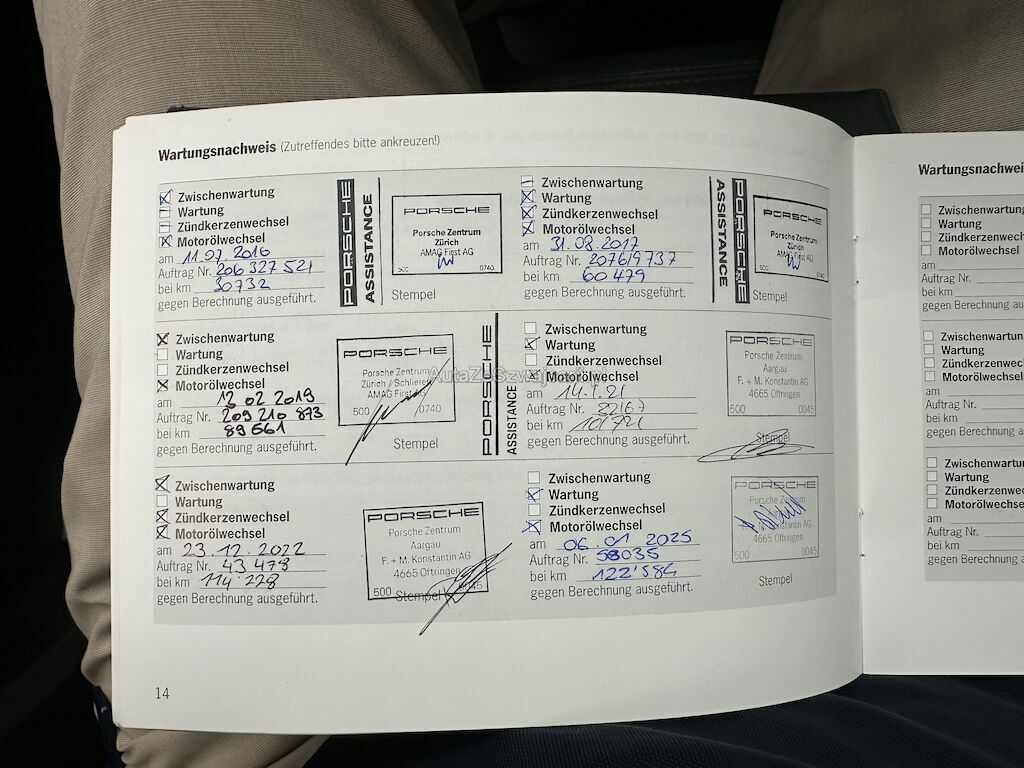 Wartungsnachweis (Zutreffendes bitte ankreuzen!)
Zwischenwartung
Wartung
Zündkerzenwechsel
Motorölwechsel
am 11.07.2016
Auftrag Nr. 206 327 521
bei km 30732
gegen Berechnung ausgeführt.
PORSCHE
ASSISTANCE
PORSCHE
Porsche Zentrum
Zürich
AMAG First AG
500 0740
Stempel
Zwischenwartung
Wartung
Zündkerzenwechsel
Motorölwechsel
am 31.08.2017
Auftrag Nr. 207619737
bei km 60 479
gegen Berechnung ausgeführt.
ASSISTANCE
PORSCHE
PORSCHE
Porsche Zentrum
Zürich
AMAG First AG
500 0740
Stempel
Zwischenwartung
Wartung
Zündkerzenwechsel
Motorölwechsel
am 12 02 2019
Auftrag Nr. 209 210 873
bei km 89 561
gegen Berechnung ausgeführt.
PORSCHE
Porsche Zentrum
Zürich / Schlieren
AMAG First AG
500 0740
Stempel
PORSCHE
ASSISTANCE
Zwischenwartung
Wartung
Zündkerzenwechsel
Motorölwechsel
am
Auftrag Nr.
bei km
gegen Berechnung ausgeführt.
PORSCHE
Porsche Zentrum
Aargau
F. + M. Konstantin AG
4665 Oftringen
500 0045
Stempel
Zwischenwartung
Wartung
Zündkerzenwechsel
Motorölwechsel
am 23.12.2022
Auftrag Nr. 43 478
bei km 114'228
gegen Berechnung ausgeführt.
PORSCHE
Porsche Zentrum
Aargau
F. + M. Konstantin AG
4665 Oftringen
500 0045
Stempel
Zwischenwartung
Wartung
Zündkerzenwechsel
Motorölwechsel
am 06.01 2025
Auftrag Nr. 58035
bei km 122'584
gegen Berechnung ausgeführt.
PORSCHE
Porsche Zentrum
Konstantin AG
4665 Oftringen
500 0045
Stempel
14
Zwischenwartung
Wartung
Zündkerzenwechsel
Motorölwechsel
am
Auftrag Nr.
bei km
gegen Berechnung
Zwischenwartung
Wartung
Zündkerzenwechsel
Motorölwechsel
am
Auftrag Nr.
bei km
gegen Berechnung
Zwischenwartung
Wartung
Zündkerzenwechsel
Motorölwechsel
am
Auftrag Nr.
bei km
gegen Berechnung